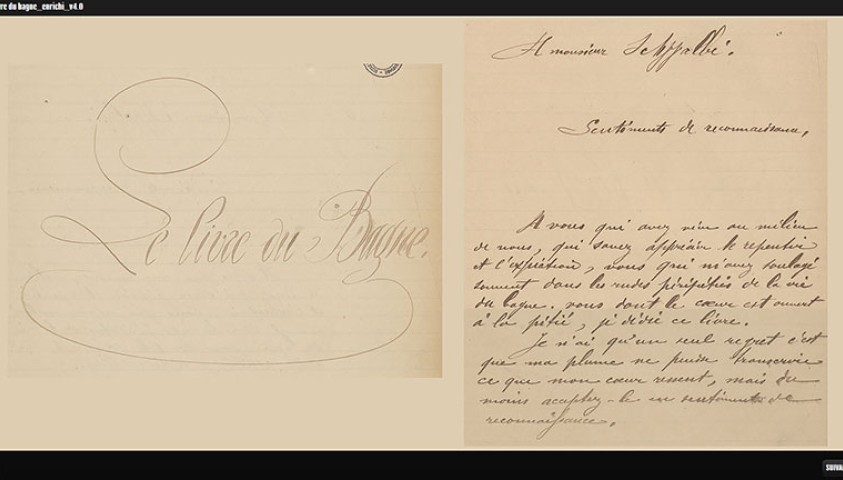 re du bagne_enrichi_v4.0
Le livre du Bagne.
A monsieur
Sentiments de reconnaissance,
A vous qui avez vécu au milieu
de nous, qui savez apprécier le repentir
et l'expiation, vous qui m'avez soulagé
souvent dans les rudes péripéties de la vie
du bagne. vous dont le cœur est ouvert
à la pitié, je dédie ce livre.
Je n'ai qu'un seul regret c'est
que ma plume ne puisse transcrire
ce que mon cœur ressent, mais du
moins acceptez-le en sentiments de
reconnaissance.
SUIVA